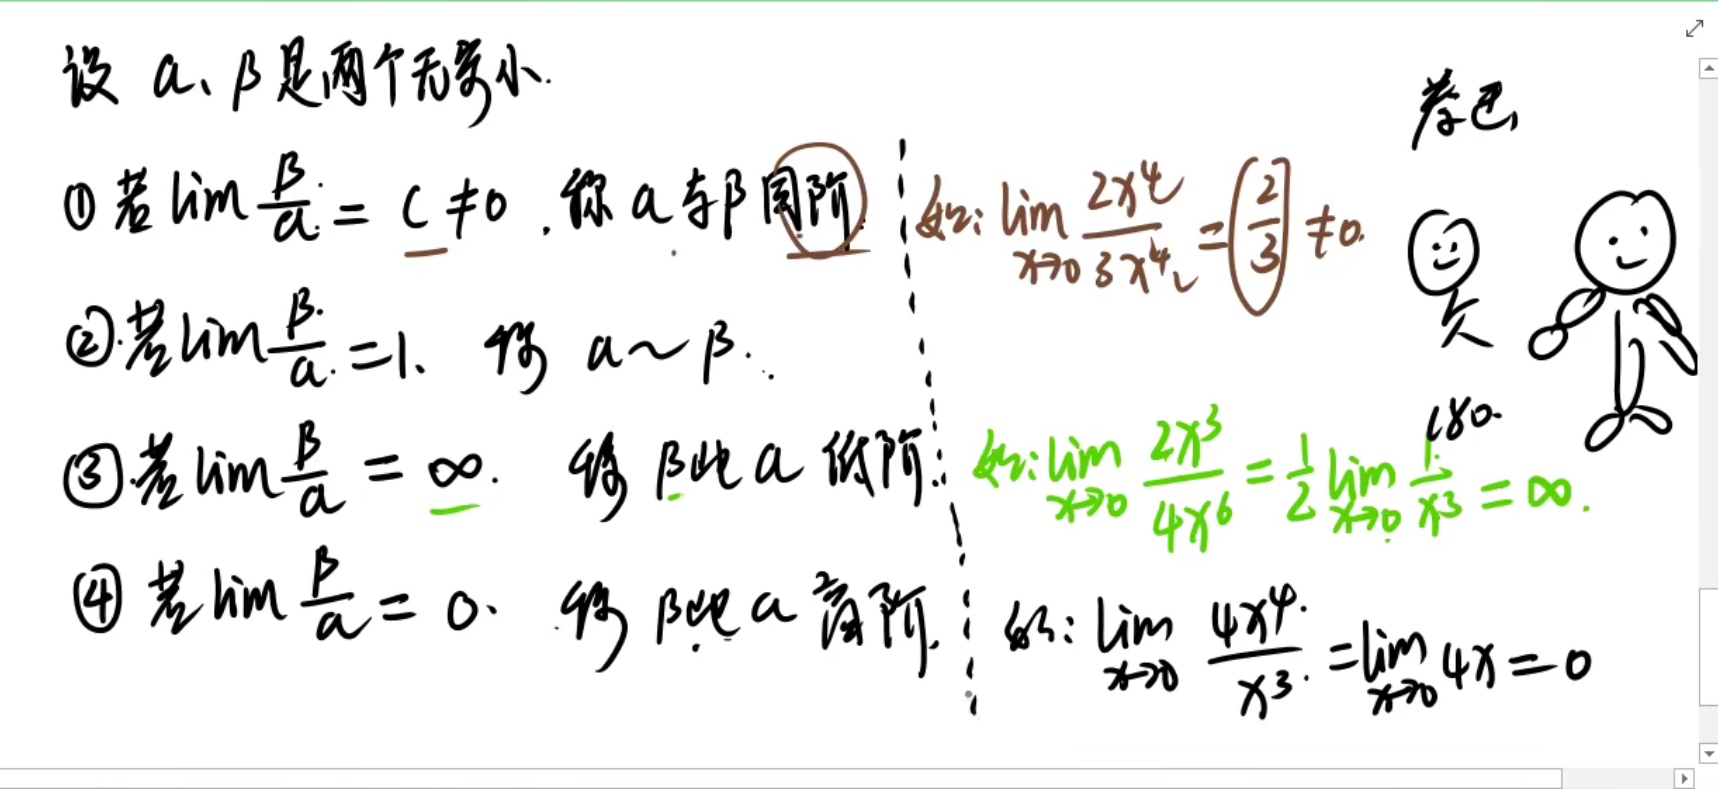 设 α、β是两个无穷小.
① 若 lim β/α = C ≠ 0 . 称 α 与 β 同阶.
如: lim x→0 2x⁴/3x⁴ = 2/3 ≠ 0.
② 若 lim β/α = 1. 称 α ~ β.
③ 若 lim β/α = ∞. 称 β比 α 低阶.
如: lim x→0 2x³/4x⁶ = 1/2 lim x→0 1/x³ = ∞.
180.
④ 若 lim β/α = 0. 称 β比 α 高阶.
如: lim x→0 4x⁴/x³ = lim x→0 4x = 0